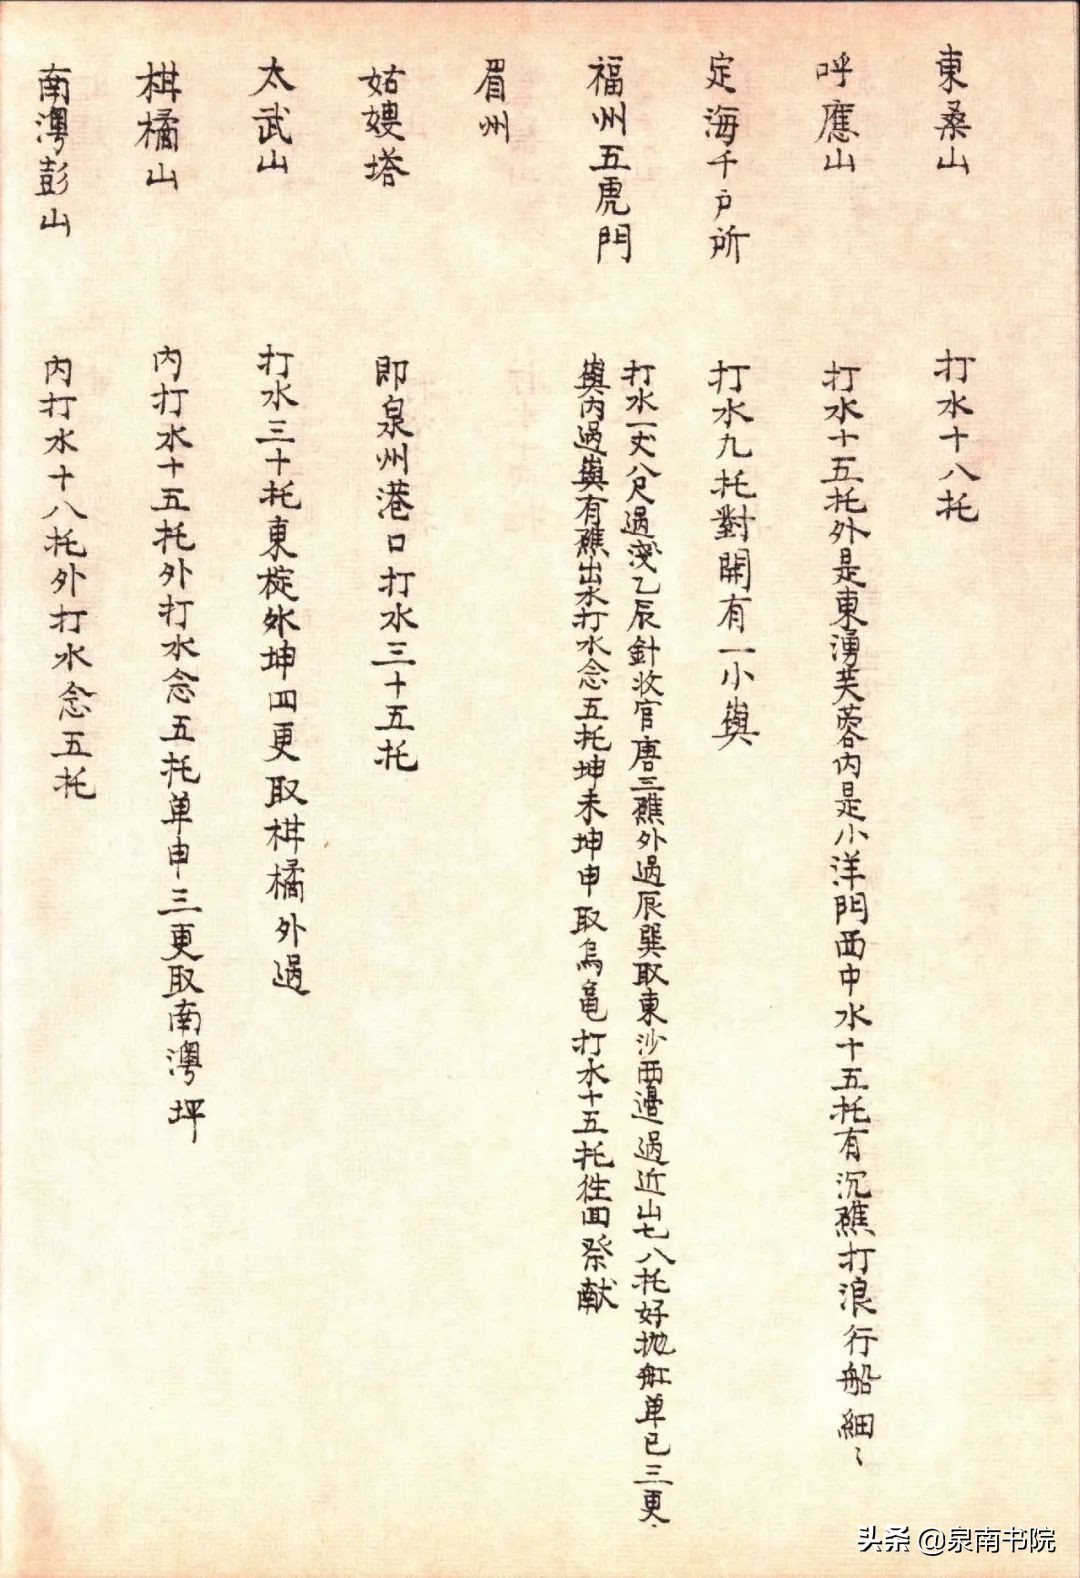 東桑山 打水十八托
呼應山 打水十五托外是東湧芙蓉內是小洋門西中水十五托有沉礁打浪行船細〻
定海千户所 打水九托對開有一小嶼
福州五虎門 打水一丈八尺過淺乙辰針收官唐三礁外過辰巽取東沙西邉過近山七八托好抛舡单巳三更
嶼內過嶼有礁出水打水念五托坤未坤申取烏龟打水十五托徃回祭献
眉州
姑嫂塔 即泉州港口打水三十五托
太武山 打水三十托東椗外坤四更取栟橘外過
栟橘山 内打水十五托外打水念五托单申三更取南澳坪
南澳彭山 内打水十八托外打水念五托
头条 @泉南书院